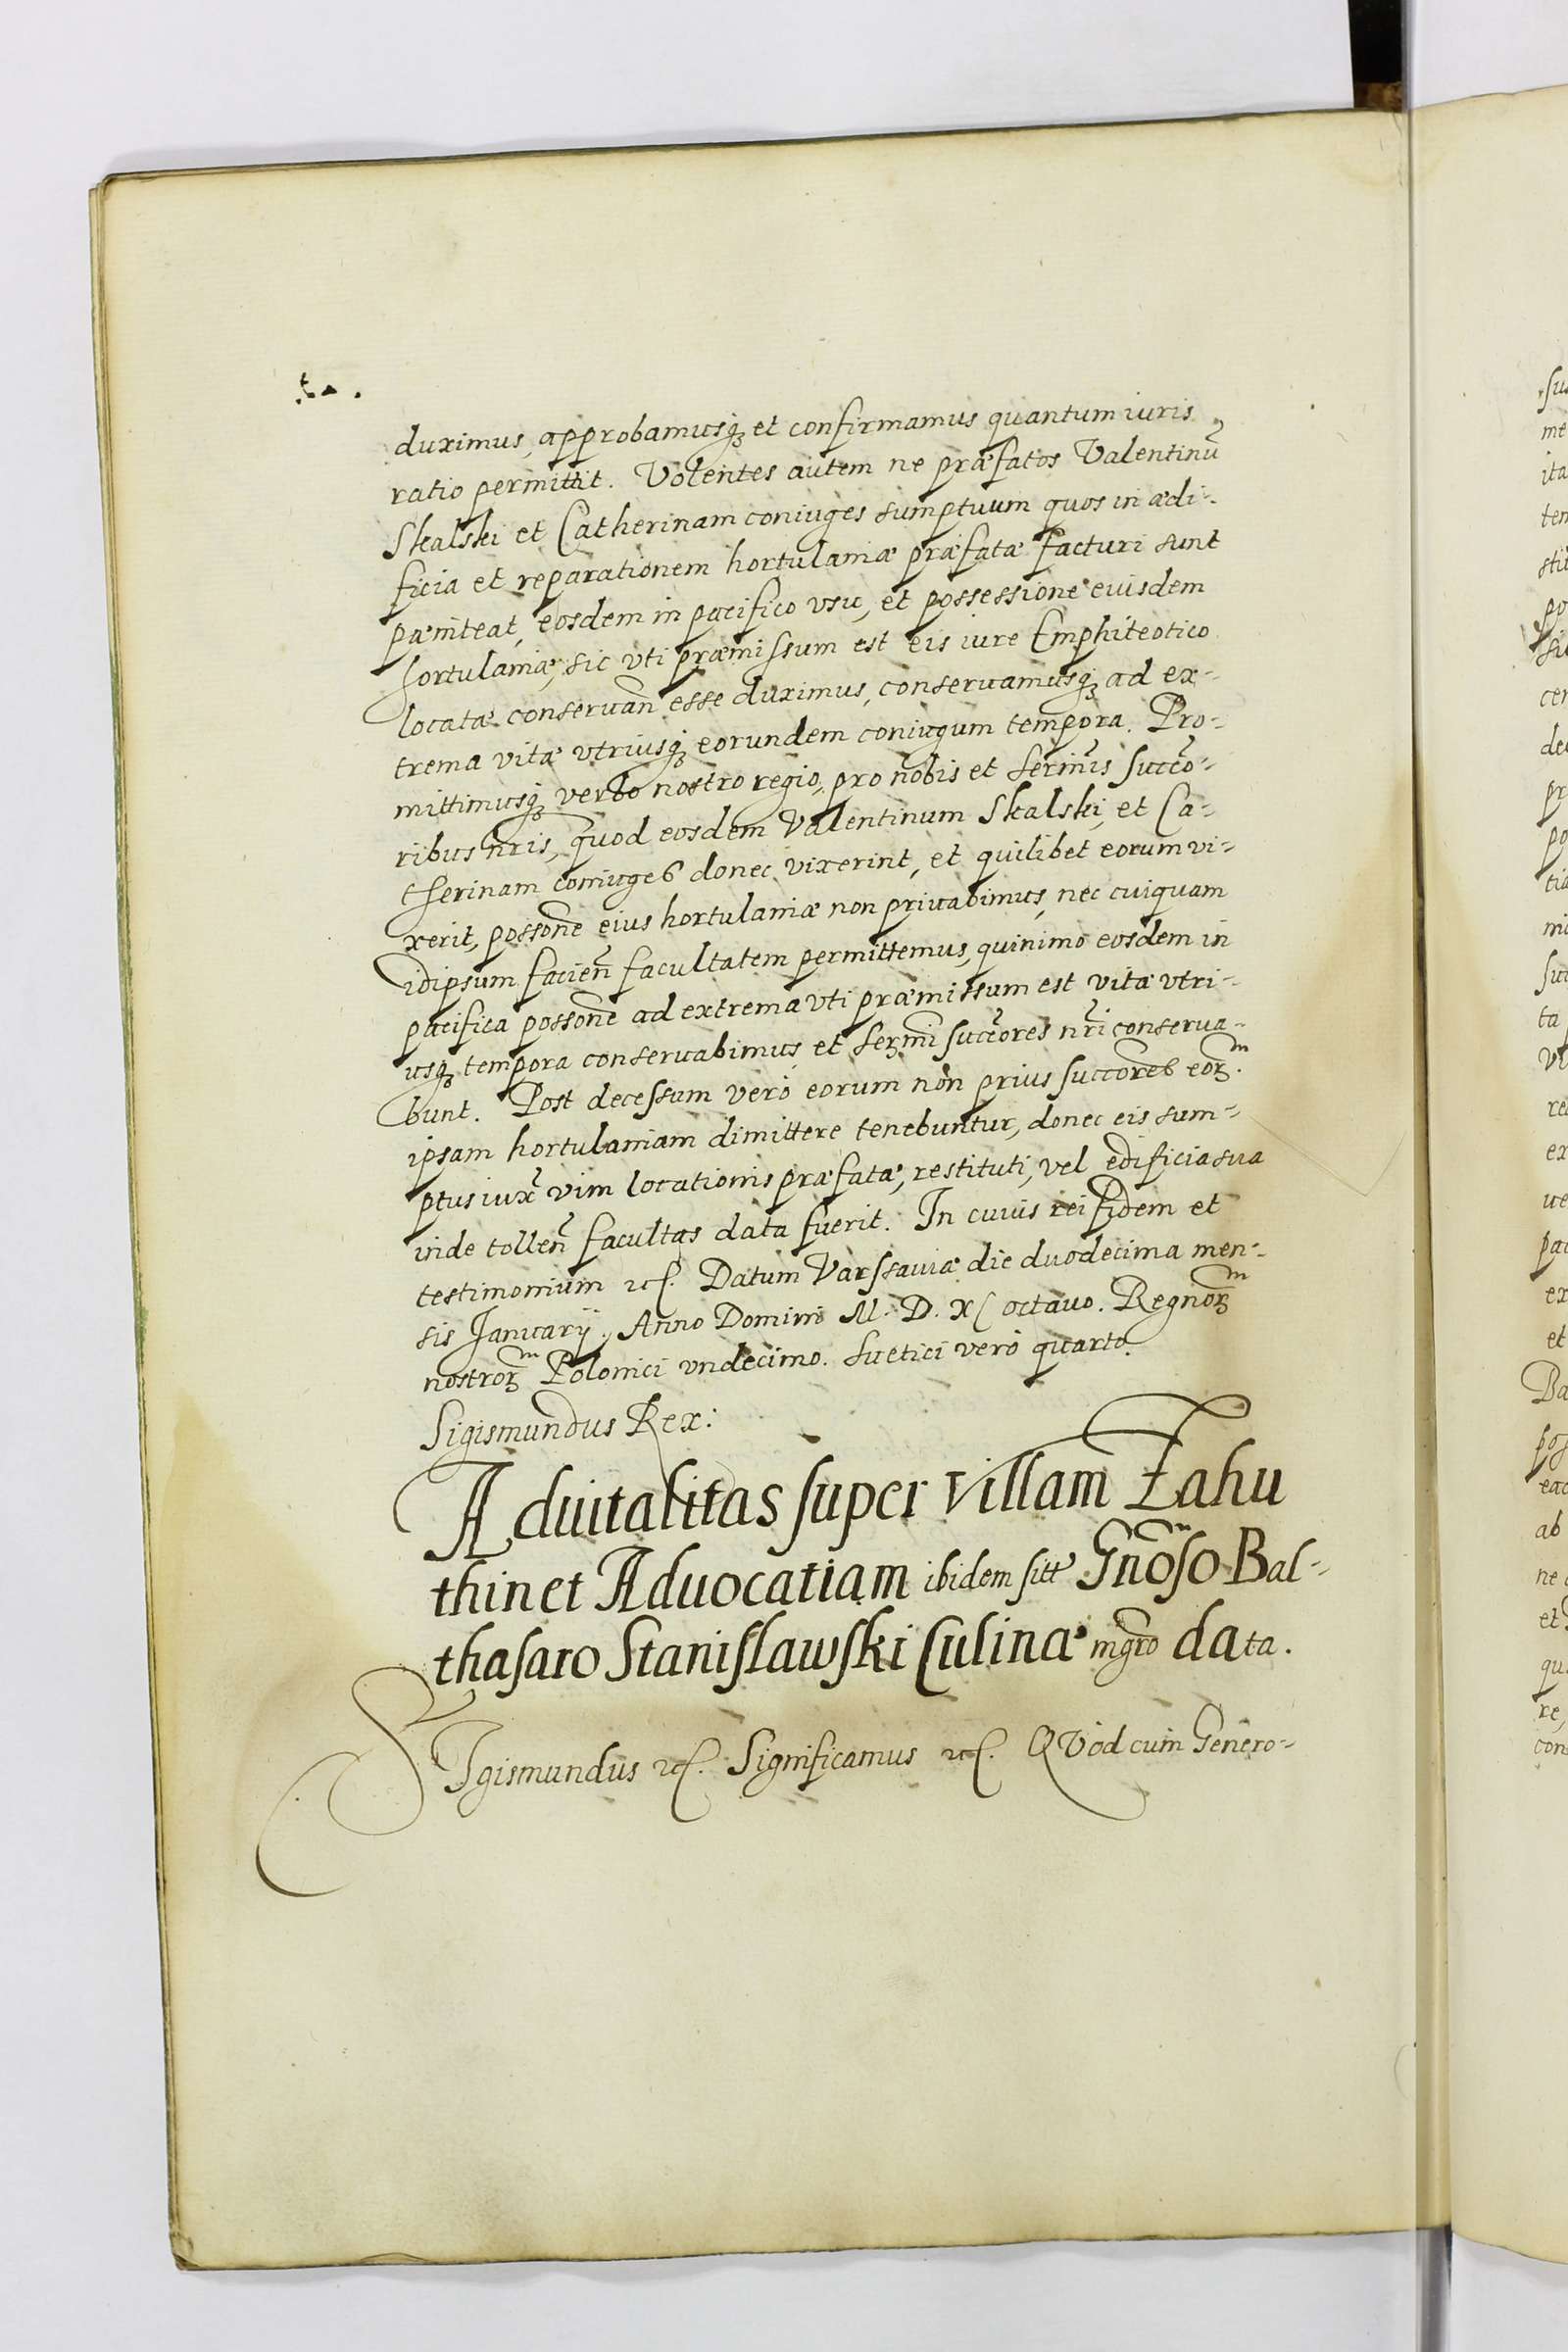 duximus, approbamusq₃ et confirmamus quantum iuris
ratio permittit. Volentes autem ne præfatos Valentinũ
Skalski et Catherinam coniuges sumptuum quos in ædi-
ficia et reparationem hortulaniæ præfatæ facturi sunt
pæniteat, eosdem in pacifico vsu, et possessione eiusdem
hortulaniæ, sic vti præmissum est eis iure Emphiteotico
locatæ conseruan̄ esse duximus, conseruamusq₃ ad ex-
trema vitæ vtriusq₃ eorundem coniugum tempora. Pro-
mittimusq₃ verbo nostro regio, pro nobis et Serm̄is succo-
ribus nr̄is, quod eosdem Valentinum Skalski, et Ca-
therinam coniuges donec vixerint, et quilibet eorum vi-
xerit, possone eius hortulaniæ non priuabimus, nec cuiquam
idipsum facien̄ facultatem permittemus, quinimo eosdem in
pacifica possone ad extrema vti præmissum est vitæ vtri-
usq₃ tempora conseruabimus, et Serm̄i succores nr̄i conserua-
bunt. Post decessum verò eorum non prius succores eor̄m
ipsam hortulaniam dimittere tenebuntur, donec eis sum-
ptus iux̄ vim locationis præfatæ, restituti, vel edificia sua
inde tollen̄ facultas data fuerit. In cuius rei fidem et
testimonium etc. Datum Varssauiæ die duodecima men-
sis Januarij, Anno Domini M. D. XC octauo. Regnor̄m
nostror̄m Polonici vndecimo. Suetici verò quarto.
Sigismundus Rex:
Aduitalitas super villam Zahu
thin et Aduocatiam ibidem sitt Gn̄oso Bal-
thasaro Stanislawski Culinæ mgr̄o data.
SIgismundus etc. Significamus etc. QVod cum Genero-